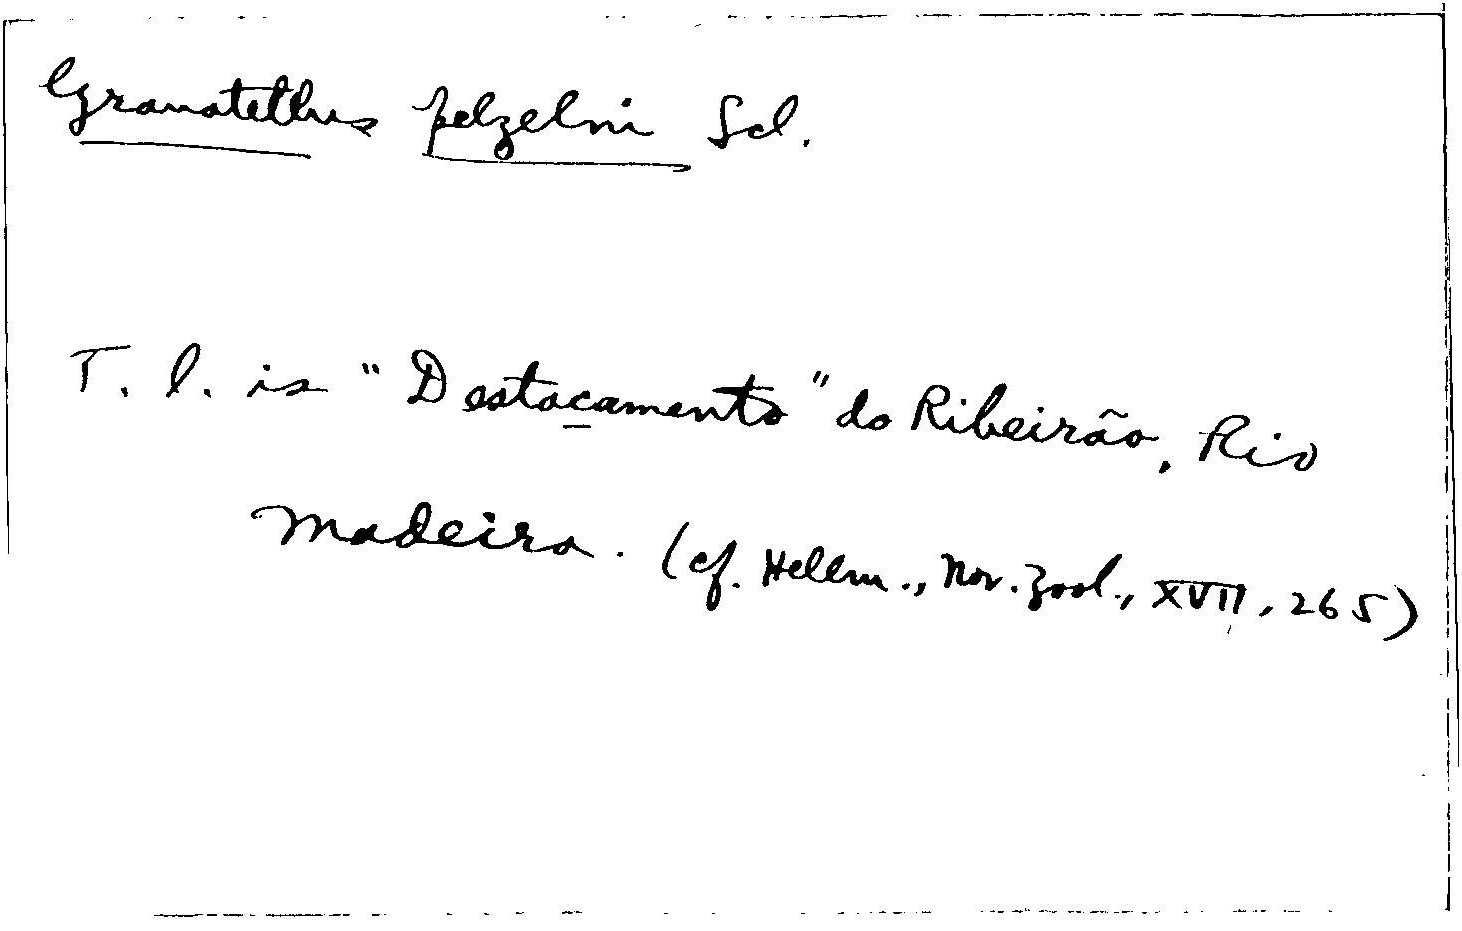 Granatellus pelzelni Scl.
T. l. is "Destacamento" do Ribeirão, Rio
Madeira. (cf. Hellm., Nov. Zool., XVII, 265)